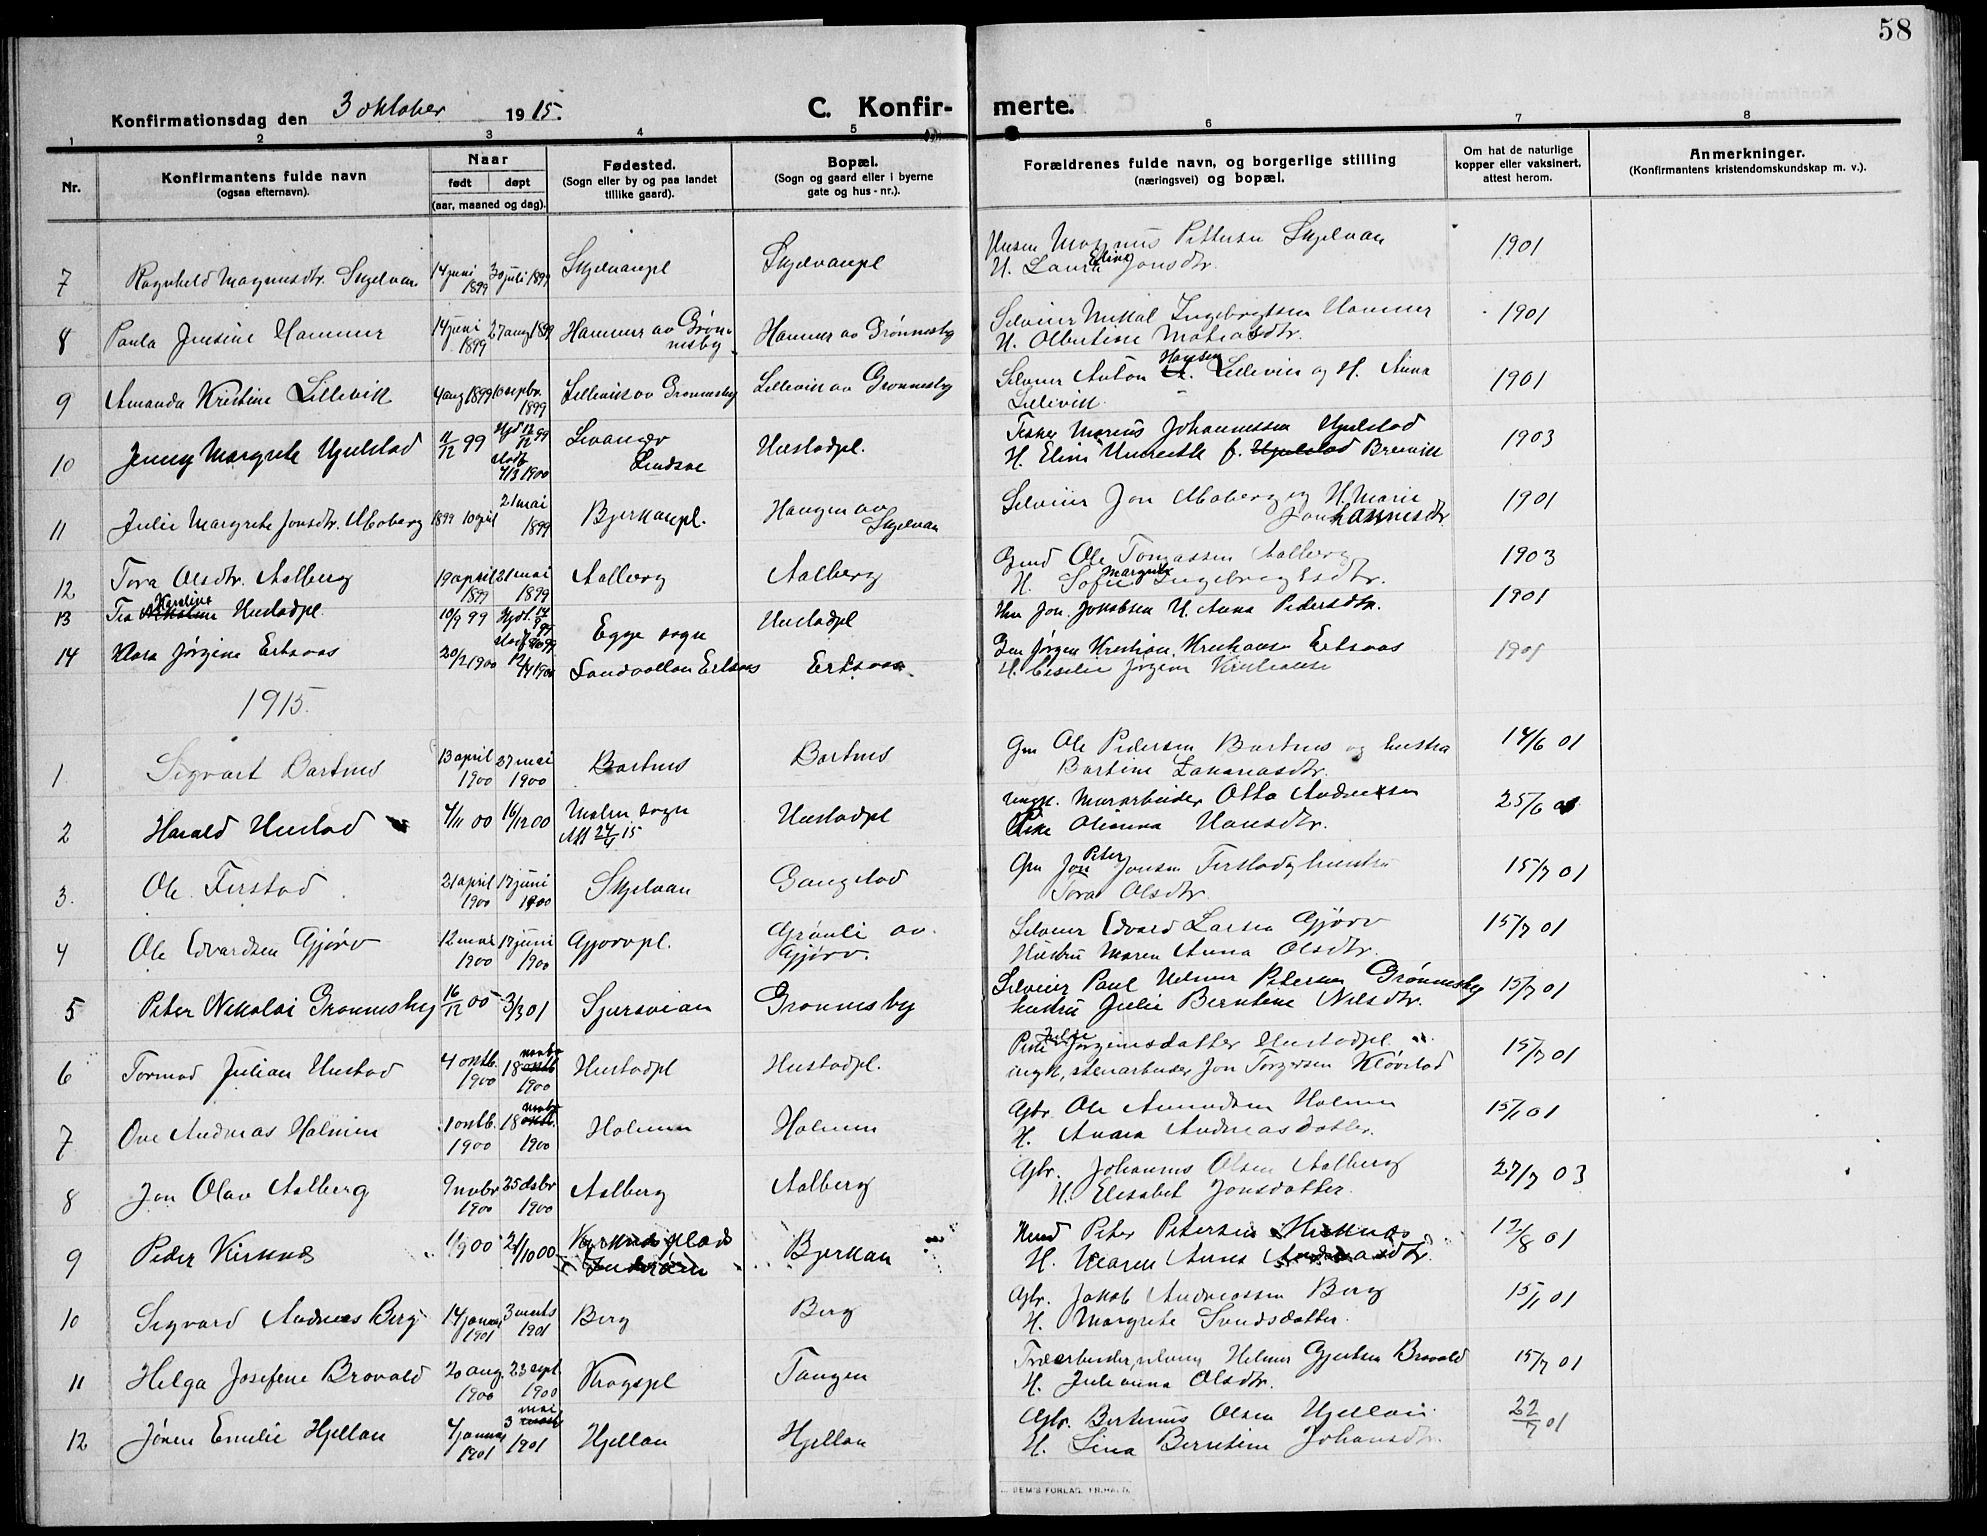 58
Konfirmationsdag den 3 oktober 1915.
C. Konfir- merte.
1 2 3 4 5 6 7 8
Nr.
Konfirmantens fulde navn
(ogsaa efternavn).
Naar
født døpt
(aar, maaned og dag).
Fødested.
(Sogn eller by og paa landet
tillike gaard).
Bopæl.
(Sogn og gaard eller i byerne
gate og hus-nr.).
Forældrenes fulde navn, og borgerlige stilling
(næringsvei) og bopæl.
Om hat de naturlige
kopper eller vaksinert,
attest herom.
Anmerkninger.
(Konfirmantens kristendomskundskap m. v.).
7 Ragnhild Magnusdtr. Skjelvan 14 juni 1899 30 juli 1899 Skjelvanpl Skjelvanpl Magnus Pettersen Skjelvan 1901
H. Laura Eline Jonsdtr.
8 Paula Jensine Hammer 14 juni 1899 27 aug 1899 Hammer av Grønnesby Hammer av Grønnesby Selveier Mikal Ingebrigtsen Hammer 1901
H. Olbertine Matiasdtr.
9 Amanda Kristine Lillevik 4 aug 1899 10 septbr. 1899 Lillevik av Grønnesby Lillevik av Grønnesby Selveier Anton Hansen Lillevik og H. Anna 1901
Lillevik.
10 Jenny Margrete Hjulstad 11/12 99 Hjd 12/12 99 stadf. 4/3 1900 Levanger Hustadpl. Fisker Marius Johannessen Hjulstad 1903
H. Eline f. Hjulstad Breivik
11 Julie Margrete Jonsdtr. Moberg 1899 10 april 21 mai 1899 Bjerkanpl. Haugen av Skjelvan Selveier Jon Moberg og H. Marie 1901
Johannesdtr
12 Tora Olsdtr. Aalberg 19 april 1899 21 mai 1899 Aalberg Aalberg Ole Tomassen Aalberg 1903
H. Sofie Margrete Ingebrigtsdtr.
13 Tea Kristine Hustadpl. 10/9 99 Egge sogn Hustadpl Jon Jakobsen H. Anna Pedersdtr. 1901
14 Klara Jørgine Ertsaas 20/2 1900 12/4 1900 Sandvollan Ertsaas Ertsaas Jørgen Kristian Kristiansen Ertsaas 1901
H. Cesilie Jørgine Kristianse
1915.
1. Sigvart Bartnes 13 april 1900 27 mai 1900 Bartnes Bartnes Gm Ole Pedersen Bartnes og hustru 14/6 01
Bartine Zakariasdtr.
2 Harald Hustad 4/11 00 16/12 00 Malm sogn Hustadpl ungk. Murarbeider Otto Andreassen 25/6 01
Att 24/4 15 Pike Olianna Hansdtr.
3. Ole Ferstad 21 april 1900 17 juni 1900 Skjelvan Gangstad Gm Jon Peter Jonsen Ferstad og hustru 15/7 01
Tora Olsdtr
4 Ole Edvardsen Gjørv 12 mai 1900 17 juni 1900 Gjørvpl. Grønli av Gjørv. Selveier Edvard Larsen Gjørv 15/7 01
Hustru Maren Anna Olsdtr.
5 Peter Nikolai Grønnesby 16/12 00 3/3 01 Grønnesby Selveier Paul Helmer Petersen Grønnesby 15/7 01
hustru Julie Berntine Nilsdtr.
6 Tormod Julian Hustad 4 oktb. 1900 18 novbr oktb 1900 Hustadpl Hustadpl. Pike Jørginsdatter Hustadpl. 15/7 01
ungk, stenarbeider Jon Torgersen Kløvstad
7 Ove Andreas Holmen 1 oktb. 1900 18 novbr oktb. 1900 Holmen Holmen Gbr. Ole Amundsen Holmen 15/1 01
H. Anna Andreasdatter.
8 Jon Olav Aalberg 9 novbr 1900 25 dsbr 1900 Aalberg Aalberg Gbr. Johannes Olsen Aalberg 27/7 03
H. Elisabet Jonsdatter.
9 Peder Kirknes 1/9 00 21/10 00 Kirknesplads Inderøen Bjerkan Peter Petersen Kirknes 12/8 01
H. Karen Anna Andreasdtr.
10 Sigvard Andreas Berg 14 januar 1901 3 marts 1901 Berg Berg Gbr. Jakob Andreassen Berg 15/1 01
H. Margrete Svendsdatter.
11 Helga Josefine Bravold 20 aug. 1900 23 sept. 1900 Krogspl Tangen Træarbeider, Helmer Gjertsen Bravold 15/7 01
H. Julianna Olsdtr.
12 Jøren Emelie Hjellan 4 januar 1901 3 mai 1901 Hjellan Hjellan Gbr. Berteus Olsen Hjellan 22/7 01
H. Lina Berntine Johansdtr.
SEM'S FORLAG, FR.HALD.